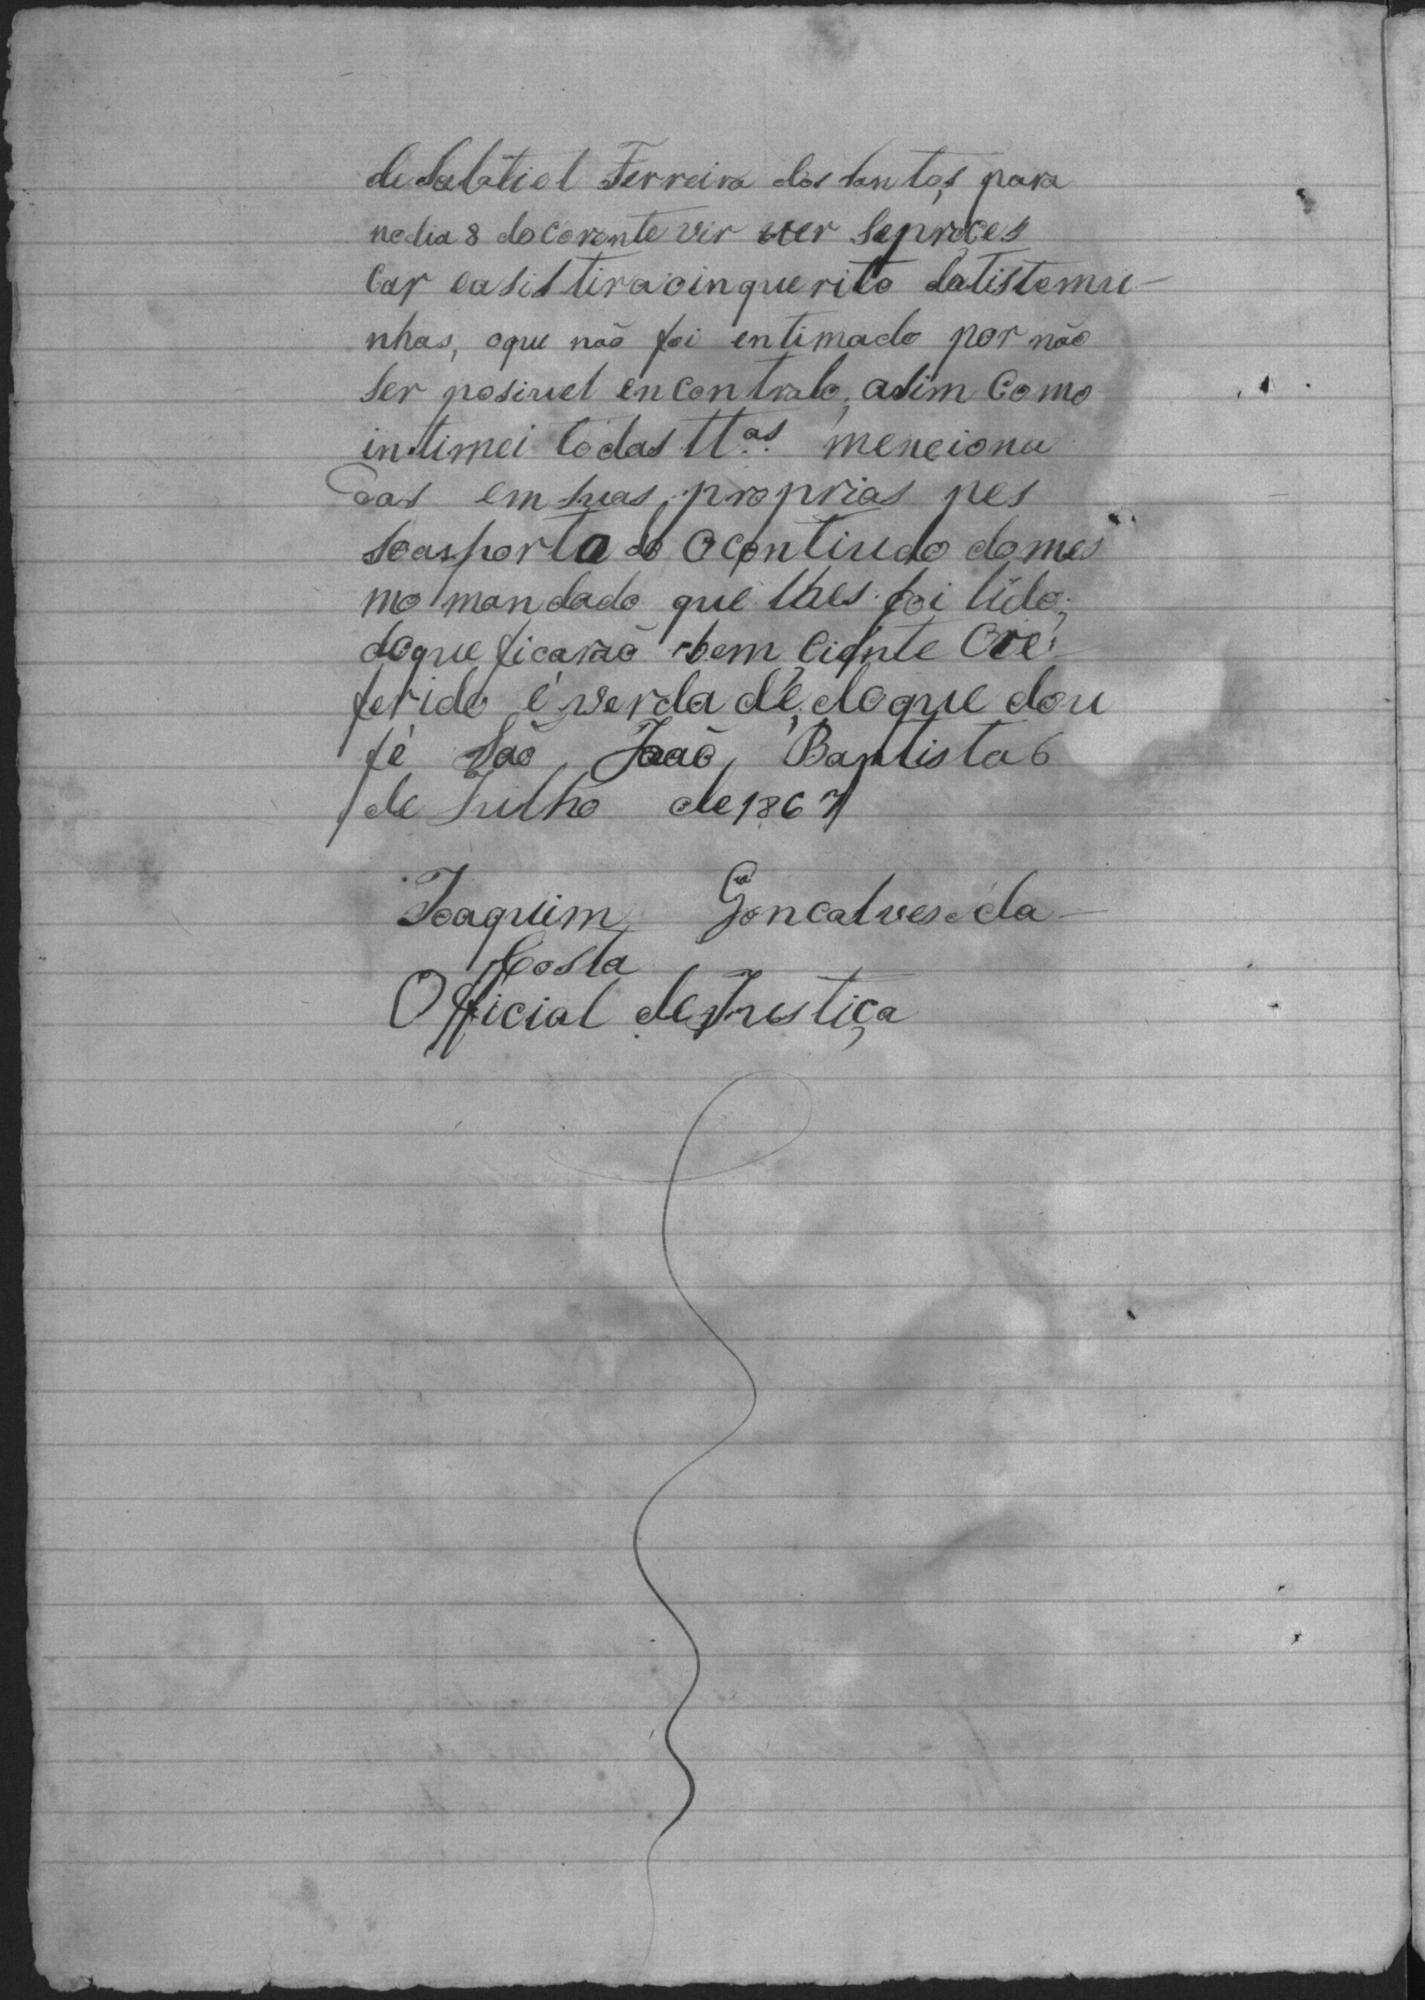 de Salatiel Ferreira dos Santos, para
no dia 8 do corente vir ver se proces
sar e asistir a o inquerito das tistemu-
nhas, o que não foi entimado por não
ser posivel encontralo, asim como
intimei todas tt.as menciona
das em suas proprias pes
soas por todo o contiudo do mes
mo mandado que lhes foi lido,
do que ficarão bem ciente O re
ferido é verdade do que dou
fé São João Baptista 6
de Julho de 1867
Joaquim Goncalves da
Costa
Official de Justiça